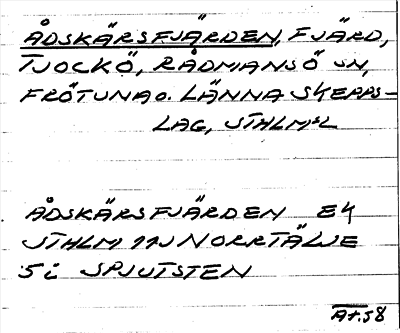 ÅDSKÄRSFJÄRDEN, FJÄRD,
TJOCKÖ, RÅDMANSÖ SN,
FRÖTUNA O. LÄNNA SKEPPS-
LAG, STHLMSL
ÅDSKÄRSFJÄRDEN EK
STHLM 11J NORRTÄLJE
5i SPJUTSTEN
At. 58